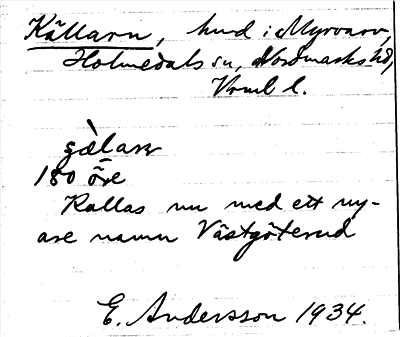 Källarn, hmd i Myrvarv,
Holmedals sn, Nordmarks hd,
Vrml l.
gæ̀laṣ
180 öre
Kallas nu med ett ny-
are namn Västgöterud
E. Andersson 1934.